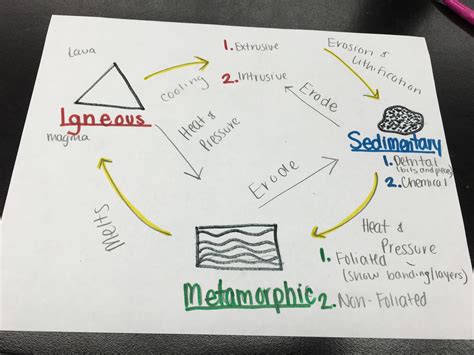 lava
Igneous
magma
cooling
1. Extrusive
2. Intrusive
Erosion &
Lithification
Erode
Sedimentary
1. Detrital
(bits and pieces)
2. Chemical
Heat &
Pressure
Erode
Heat &
Pressure
Melts
Metamorphic
1. Foliated
(show banding/layers)
2. Non-Foliated